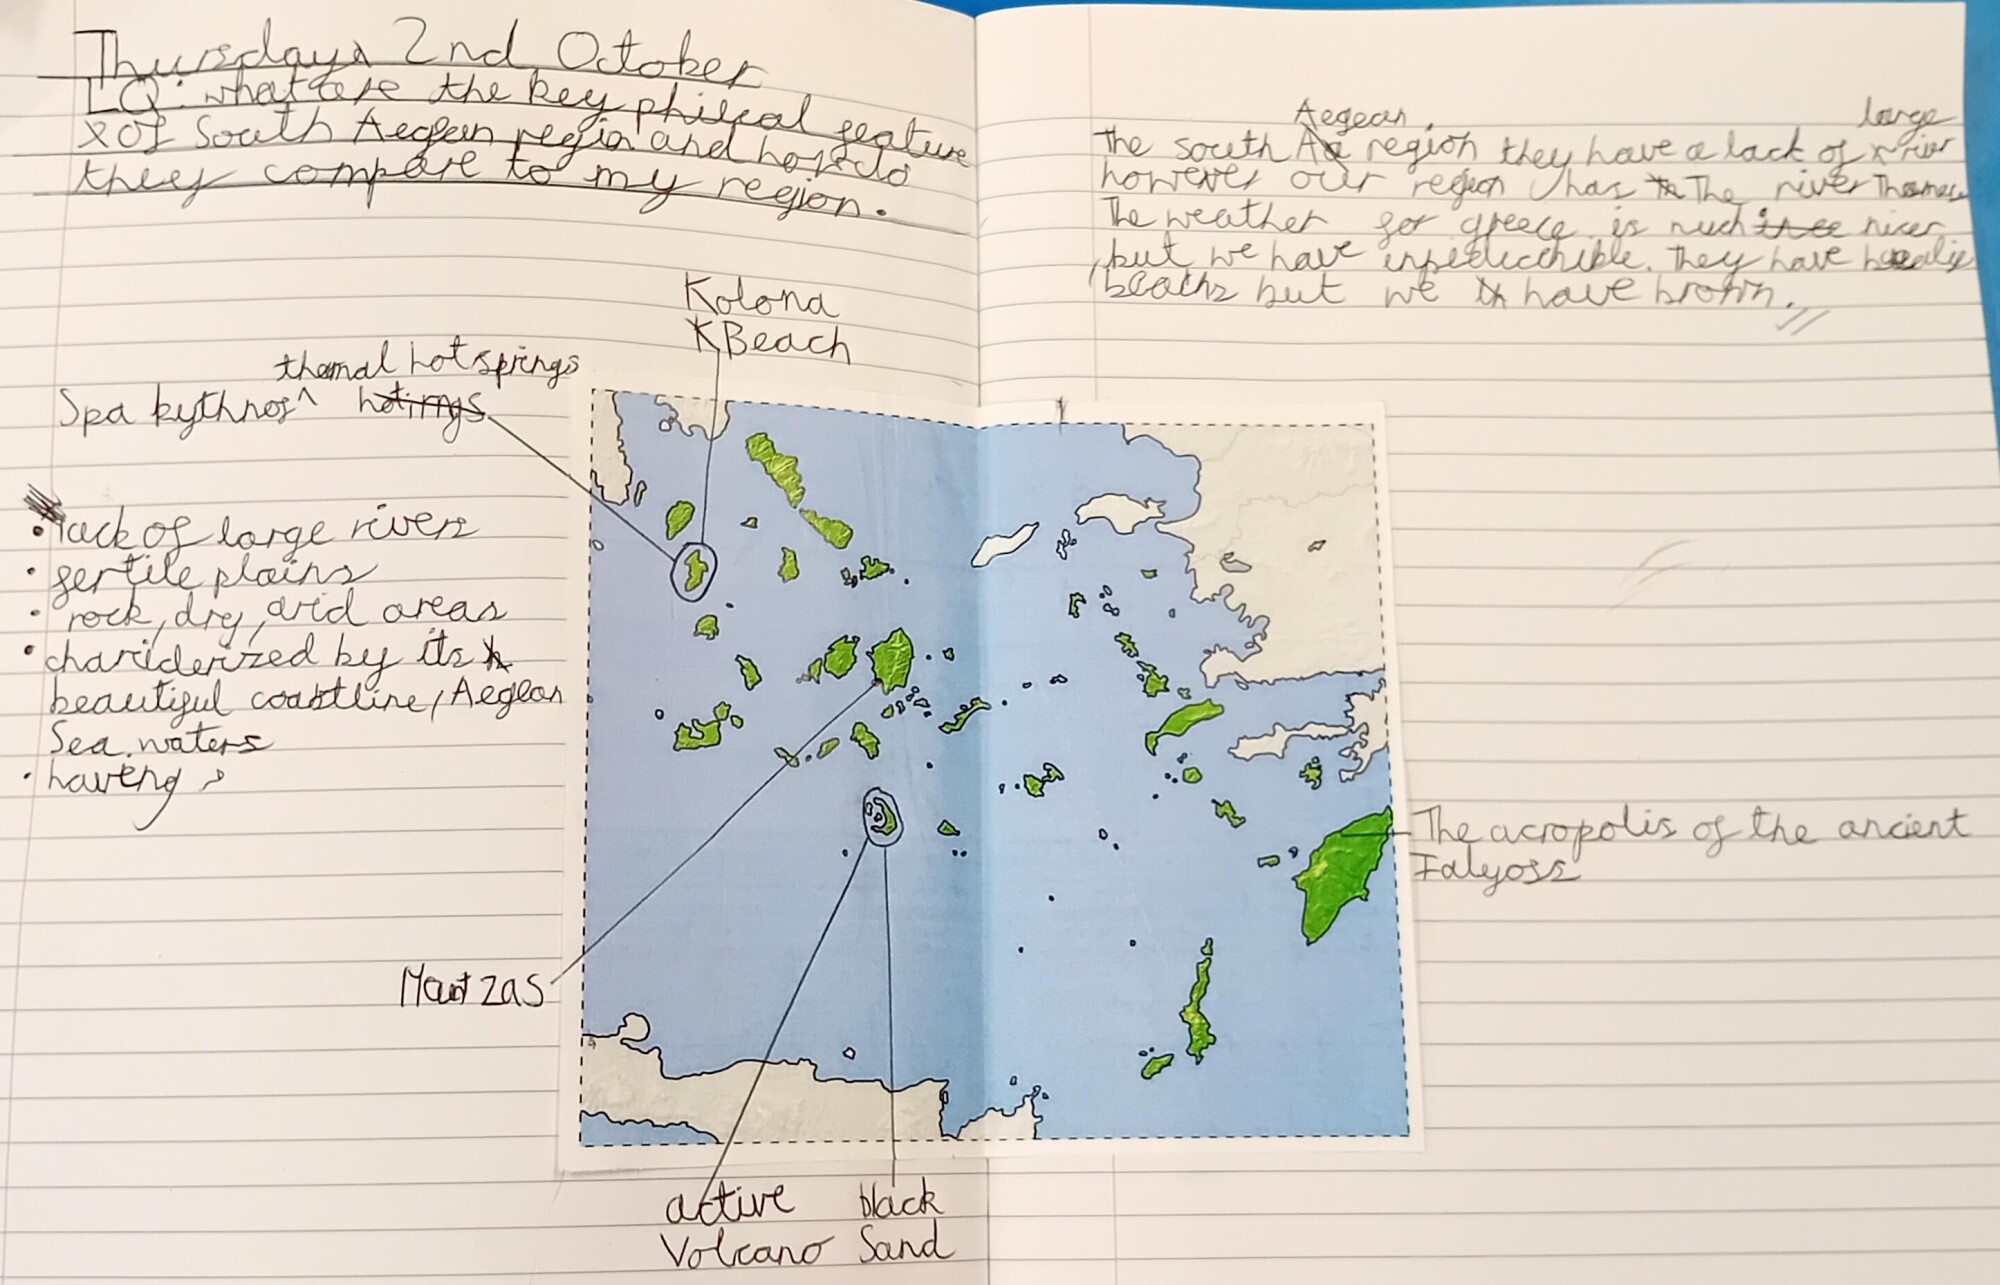 Thursday 2nd October
LQ: what are the key phiscal feature
of South Aegean region and how do
they compare to my region.
Aegean large
The south region they have a lack of river
however our region has The river Thames
The weather for greece is much nicer
but we have They have
beachs but we have brown.
Kolona
Beach
thermal hot springs
Spa kythnos ^
• lack of large rivers
• fertile plains
• rock, dry, arid areas
• chariderized by its
beautiful coastline, Aegean
Sea waters
• having
Mout zas
active
Volcano
black
Sand
The acropolis of the ancient
Ialyoss